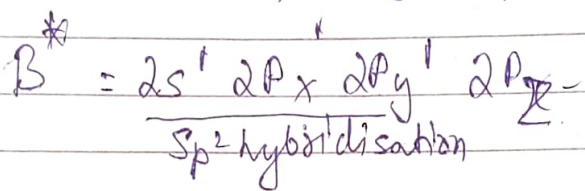 B* = 2s¹ 2Px¹ 2Py¹ 2Pz-
Sp² hybridisation